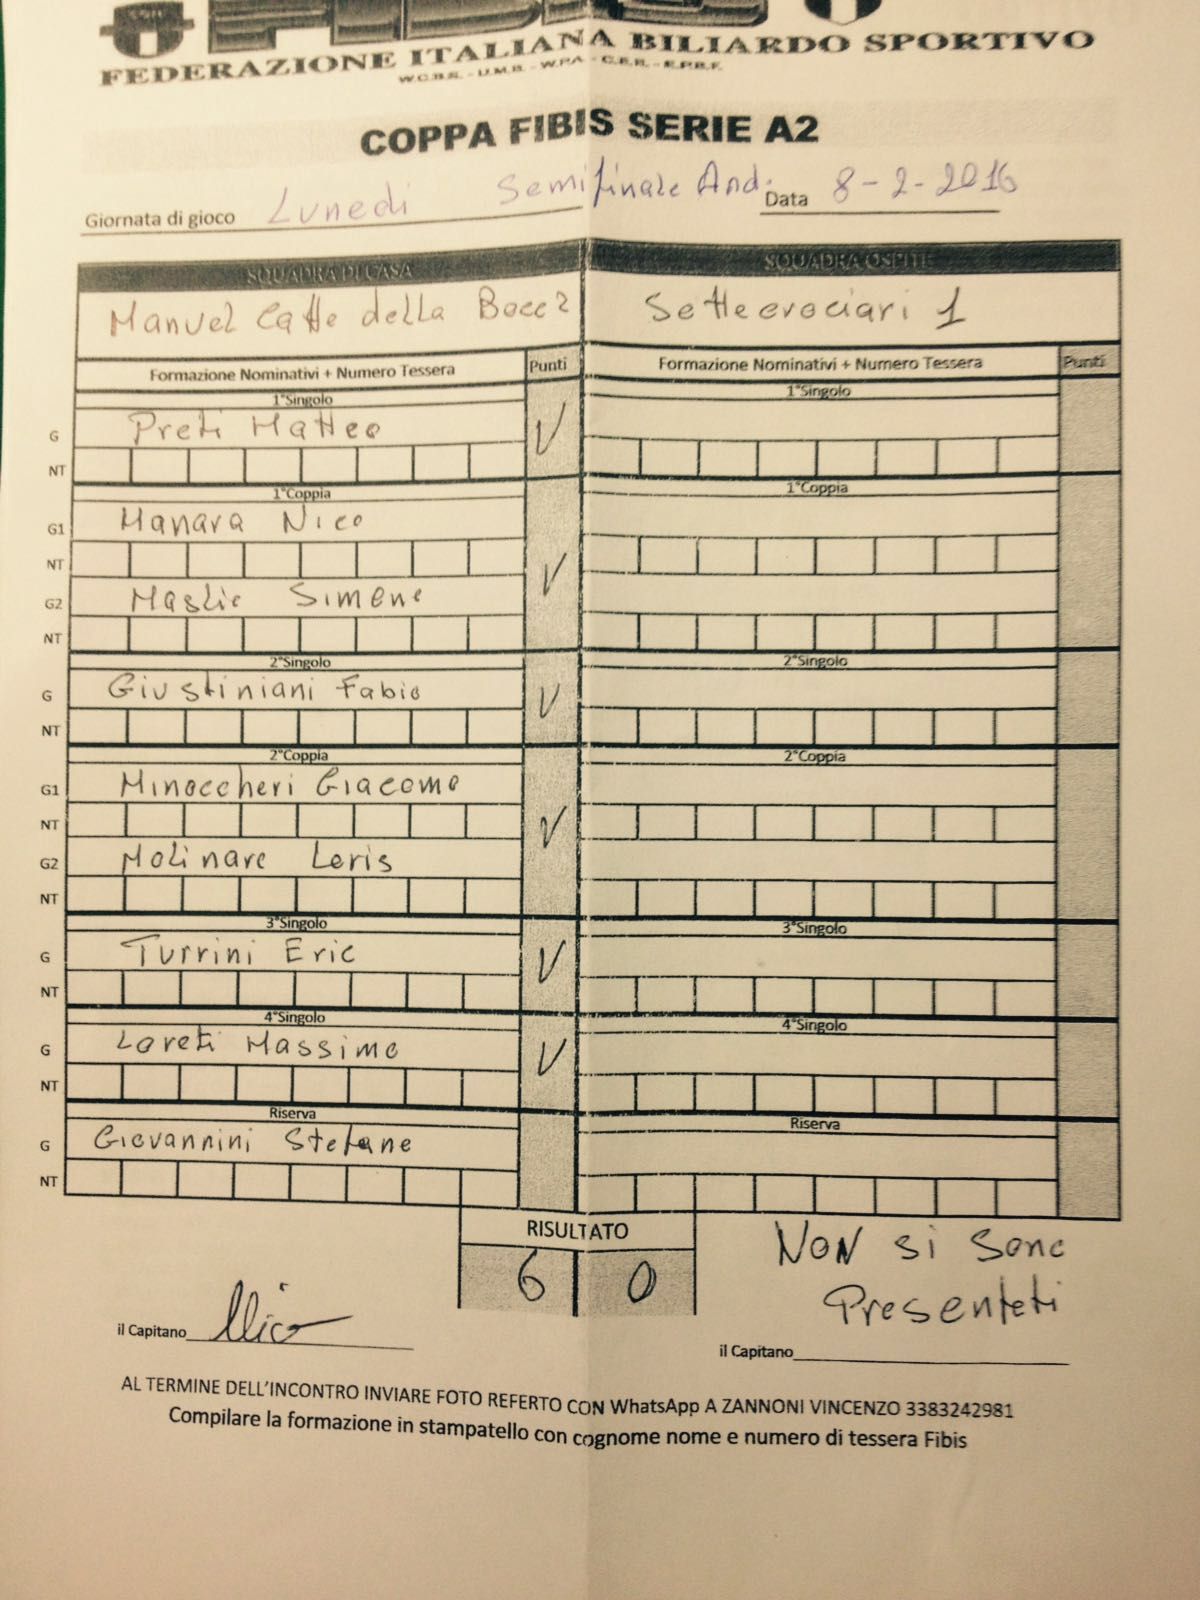 FEDERAZIONE ITALIANA BILIARDO SPORTIVO
W.C.B.S. - U.M.B. - W.P.A. - C.E.B. - E.P.B.F.
COPPA FIBIS SERIE A2
Giornata di gioco Lunedi Semifinale And. Data 8-2-2016
SQUADRA DI CASA SQUADRA OSPITE
Manuel Caffe della Settecrociari 1
Formazione Nominativi + Numero Tessera Punti Formazione Nominativi + Numero Tessera Punti
1°Singolo 1°Singolo
G Preti Matteo V
NT
1°Coppia 1°Coppia
G1 Manara Nico
NT V
G2 Simone
NT
2°Singolo 2°Singolo
G Giustiniani Fabio V
NT
2°Coppia 2°Coppia
G1 Minoccheri Giacomo
NT V
G2 Molinare Loris
NT
3°Singolo 3°Singolo
G Turrini Eric V
NT
4°Singolo 4°Singolo
G Loreti Massimo V
NT
Riserva Riserva
G Giovannini Stefano
NT
RISULTATO
6 0
Non si sono
Presenteti
il Capitano Nico
il Capitano
AL TERMINE DELL'INCONTRO INVIARE FOTO REFERTO CON WhatsApp A ZANNONI VINCENZO 3383242981
Compilare la formazione in stampatello con cognome nome e numero di tessera Fibis